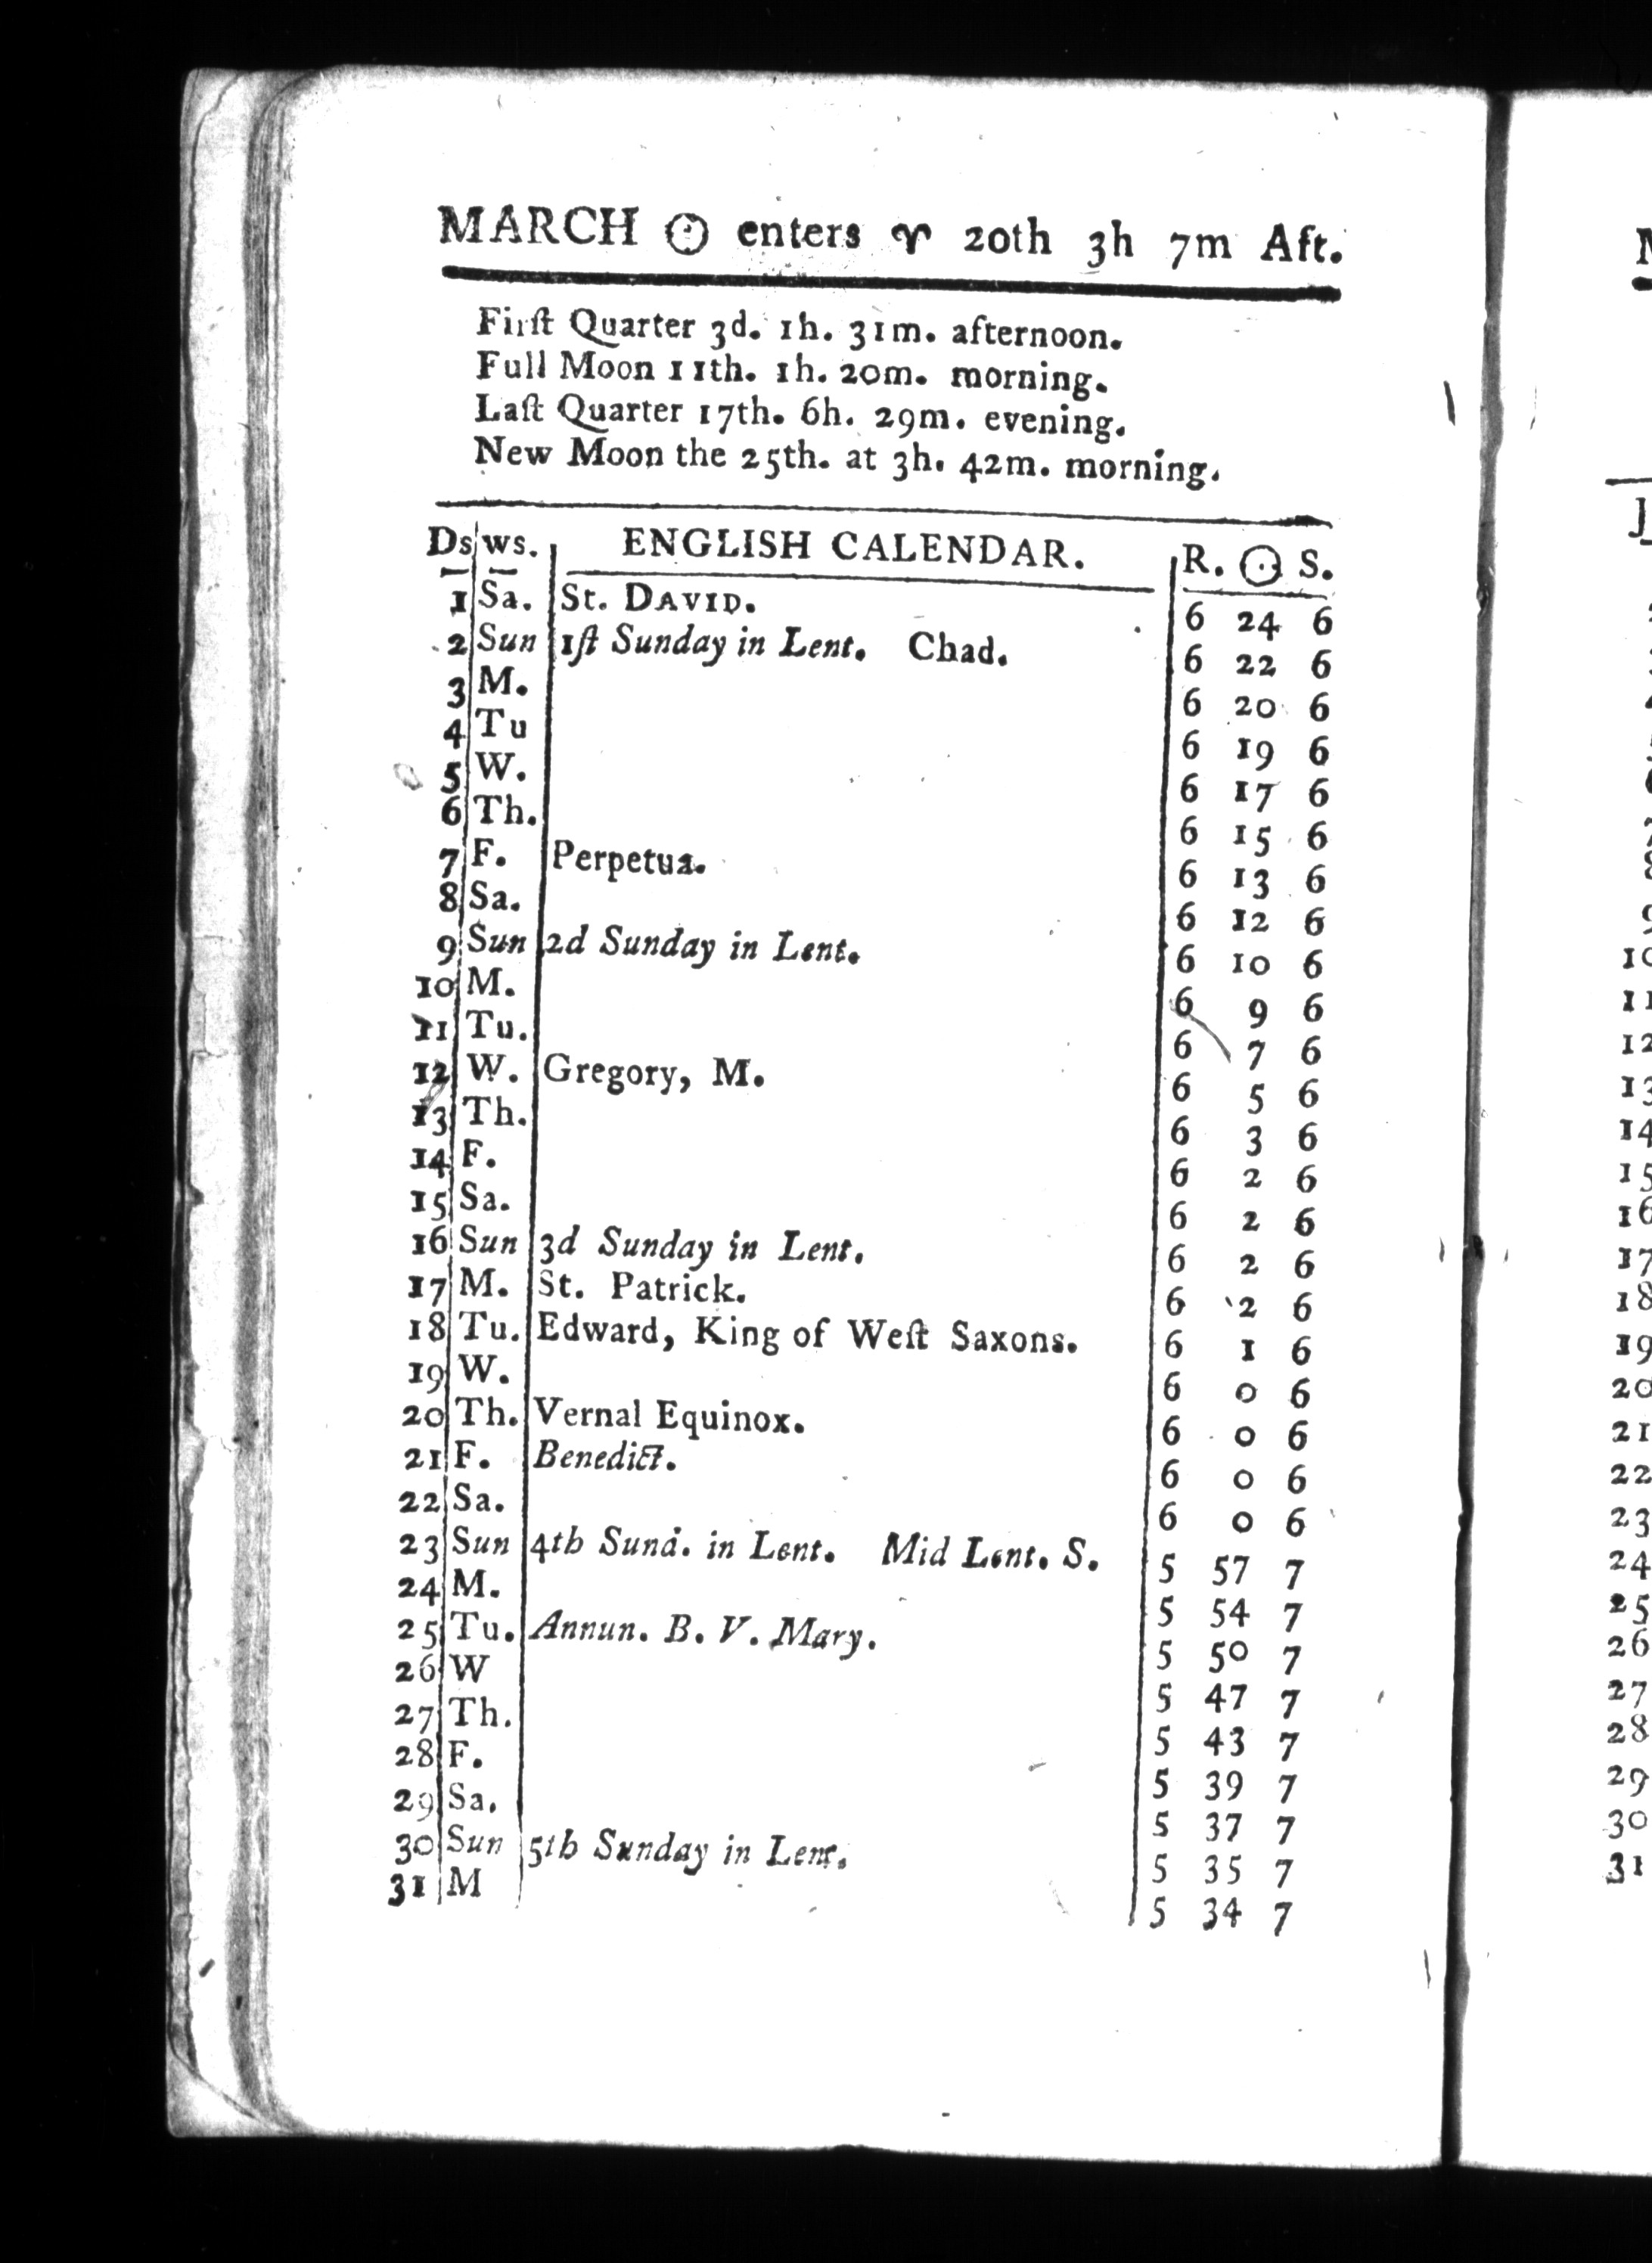 MARCH ☉ enters ♈ 20th 3h 7m Aft.
Firſt Quarter 3d. 1h. 31m. afternoon.
Full Moon 11th. 1h. 20m. morning.
Laſt Quarter 17th. 6h. 29m. evening.
New Moon the 25th. at 3h. 42m. morning.
Ds ws. ENGLISH CALENDAR. R. ☉ S.
1 Sa. St. DAVID. 6 24 6
2 Sun 1ſt Sunday in Lent. Chad. 6 22 6
3 M. 6 20 6
4 Tu 6 19 6
5 W. 6 17 6
6 Th. 6 15 6
7 F. Perpetua. 6 13 6
8 Sa. 6 12 6
9 Sun 2d Sunday in Lent. 6 10 6
10 M. 6 9 6
11 Tu. 6 7 6
12 W. Gregory, M. 6 5 6
13 Th. 6 3 6
14 F. 6 2 6
15 Sa. 6 2 6
16 Sun 3d Sunday in Lent. 6 2 6
17 M. St. Patrick. 6 2 6
18 Tu. Edward, King of Weſt Saxons. 6 1 6
19 W. 6 0 6
20 Th. Vernal Equinox. 6 0 6
21 F. Benedict. 6 0 6
22 Sa. 6 0 6
23 Sun 4th Sund. in Lent. Mid Lent. S. 5 57 7
24 M. 5 54 7
25 Tu. Annun. B. V. Mary. 5 50 7
26 W 5 47 7
27 Th. 5 43 7
28 F. 5 39 7
29 Sa. 5 37 7
30 Sun 5th Sunday in Lent. 5 35 7
31 M 5 34 7
10
11
12
13
14
15
16
17
18
19
20
21
22
23
24
25
26
27
28
29
30
31